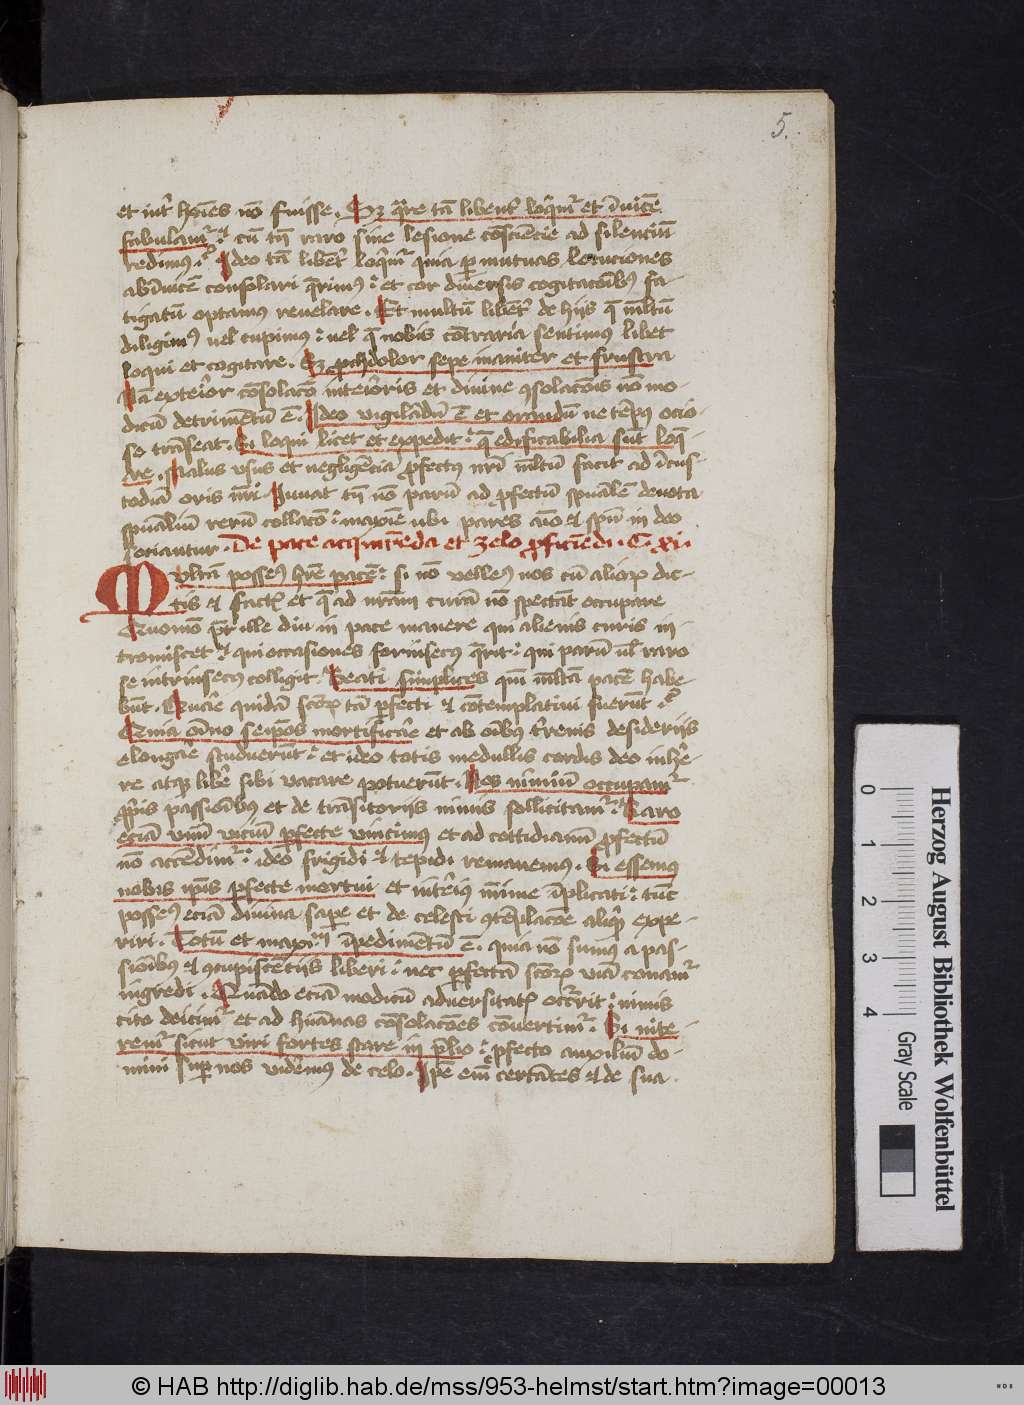 5.
et int͛ hoı̄es nō fuisse. Sꝫ q̄re tā libent͛ loqm͛ et ī̄uicē
fabulam͛: cū tn̄ raro sine lesione cōsciēcie ad silenciū
redimus. Ideo tā libēt͛ loqm͛ quia ꝑ mutuas locuciones
ab īuicē consolari q̄rimꝰ: et cor diuersis cogitacōibꝰ fa-
tigatū optamus reuelare. Et multū libēt͛ de hijs q̄ ml̄tū
diligimꝰ uel cupimꝰ: uel q̄ nobis cōtraria sentimus libet
loqui et cogitare. Sꝫ prohdolor sepe inaniter et frustra
Nā exterior cōsolacō interioris et diuine ꝯsolacōis nō mo-
dicū detrimētū ē. Ideo vigilādū ē et orandū ne tēpꝰ ocio-
se trāseat. Si loqui licet et expedit: q̄ edificabilia sūt loq̄-
re. Malus vsus et negligēcia ꝓfectꝰ nr̄i ml̄tū facit ad īcus-
todiā oris nr̄i. Iuuat tn̄ nō parū ad ꝓfectū spūalē deuota
spūaliū rerū collacō: maxīe ubi pares aīo et spū in deo
sociantur. De pace acquirēda et zelo ꝓficiēdi. C. xi.
Multā possemꝰ hr̄e pacē: si nō vellemꝰ nos cū alioꝝ dic-
tis et factꝭ et q̄ ad nr̄am curā nō spectāt occupare
Quomō pōt ille diu in pace manere qui alienis curis se in-
tromiscet: qui occasiones forinsecꝰ q̄rit: qui parū ul̄ raro
se intrinsecꝰ colligit. Beati simplices qm̄ ml̄tā pacē habe-
būt. Quare quidā scōꝝ tā ꝑfecti et cōtemplatiui fuerūt:
Quia oīno seipōs mortificare et ab oībꝰ t͛renis desiderijs
elongare studuerūt: et ideo totis medullis cordis deo inhe-
re atqꝫ libere sibi vacare potuerūt. Nos nimiū occupam͛
ꝓprijs passiōibꝰ et de trāsitorijs nimis sollicitam͛. Raro
eciā vnū viciū ꝑfecte vincimus et ad cottidianū ꝓfectū
nō accēdim͛: ideo frigidi et tepidi remanemus. Si essemꝰ
nobis ipīs ꝑfecte mortui et interiꝰ mīme īplicati: tūc
possemꝰ eciā diuina saꝑe et de celesti ꝯtēplacōe aliqͥd expe-
riri. Totū et maximū īpedimētū ē. quia nō sumꝰ a pas-
siōibꝰ et ꝯcupiscēcijs liberi: nec ꝑfectā scōꝝ viā conam͛
ingredi. Quādo eciā modicū aduersitatꝭ occrit: nimis
cito deicim͛ et ad huānas cōsolacōes cōuertim͛. Si nite-
rem͛ sicut viri fortes stare in ꝓlio: ꝓfecto auxiliū do-
mini suꝑ nos viderimꝰ de celo. Ipē enī certātes et de sua
0 1 2 3 4
Gray Scale
Herzog August Bibliothek Wolfenbüttel
© HAB http://diglib.hab.de/mss/953-helmst/start.htm?image=00013